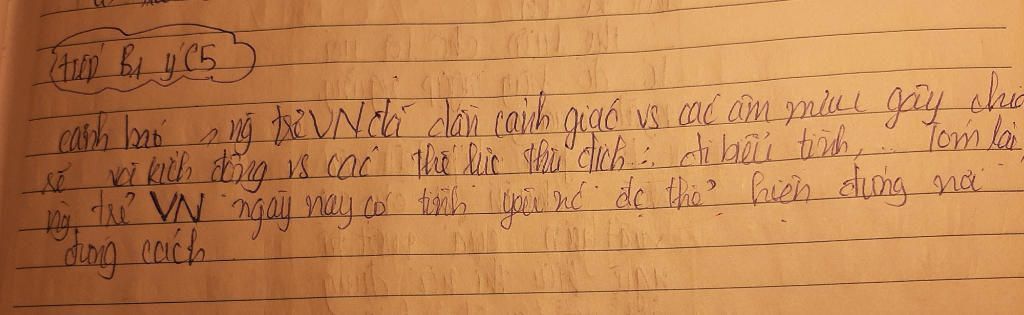 tiếp B1 ý C5
cảnh báo, ng trẻ VN đã dần cảnh giác vs các âm mưu gây chia
rẽ và kích động vs các thế lực thù địch: đi biểu tình,.. Tóm lại,
ng trẻ VN ngày nay có tình yêu nc đc thể hiện đúng nơi
đúng cách